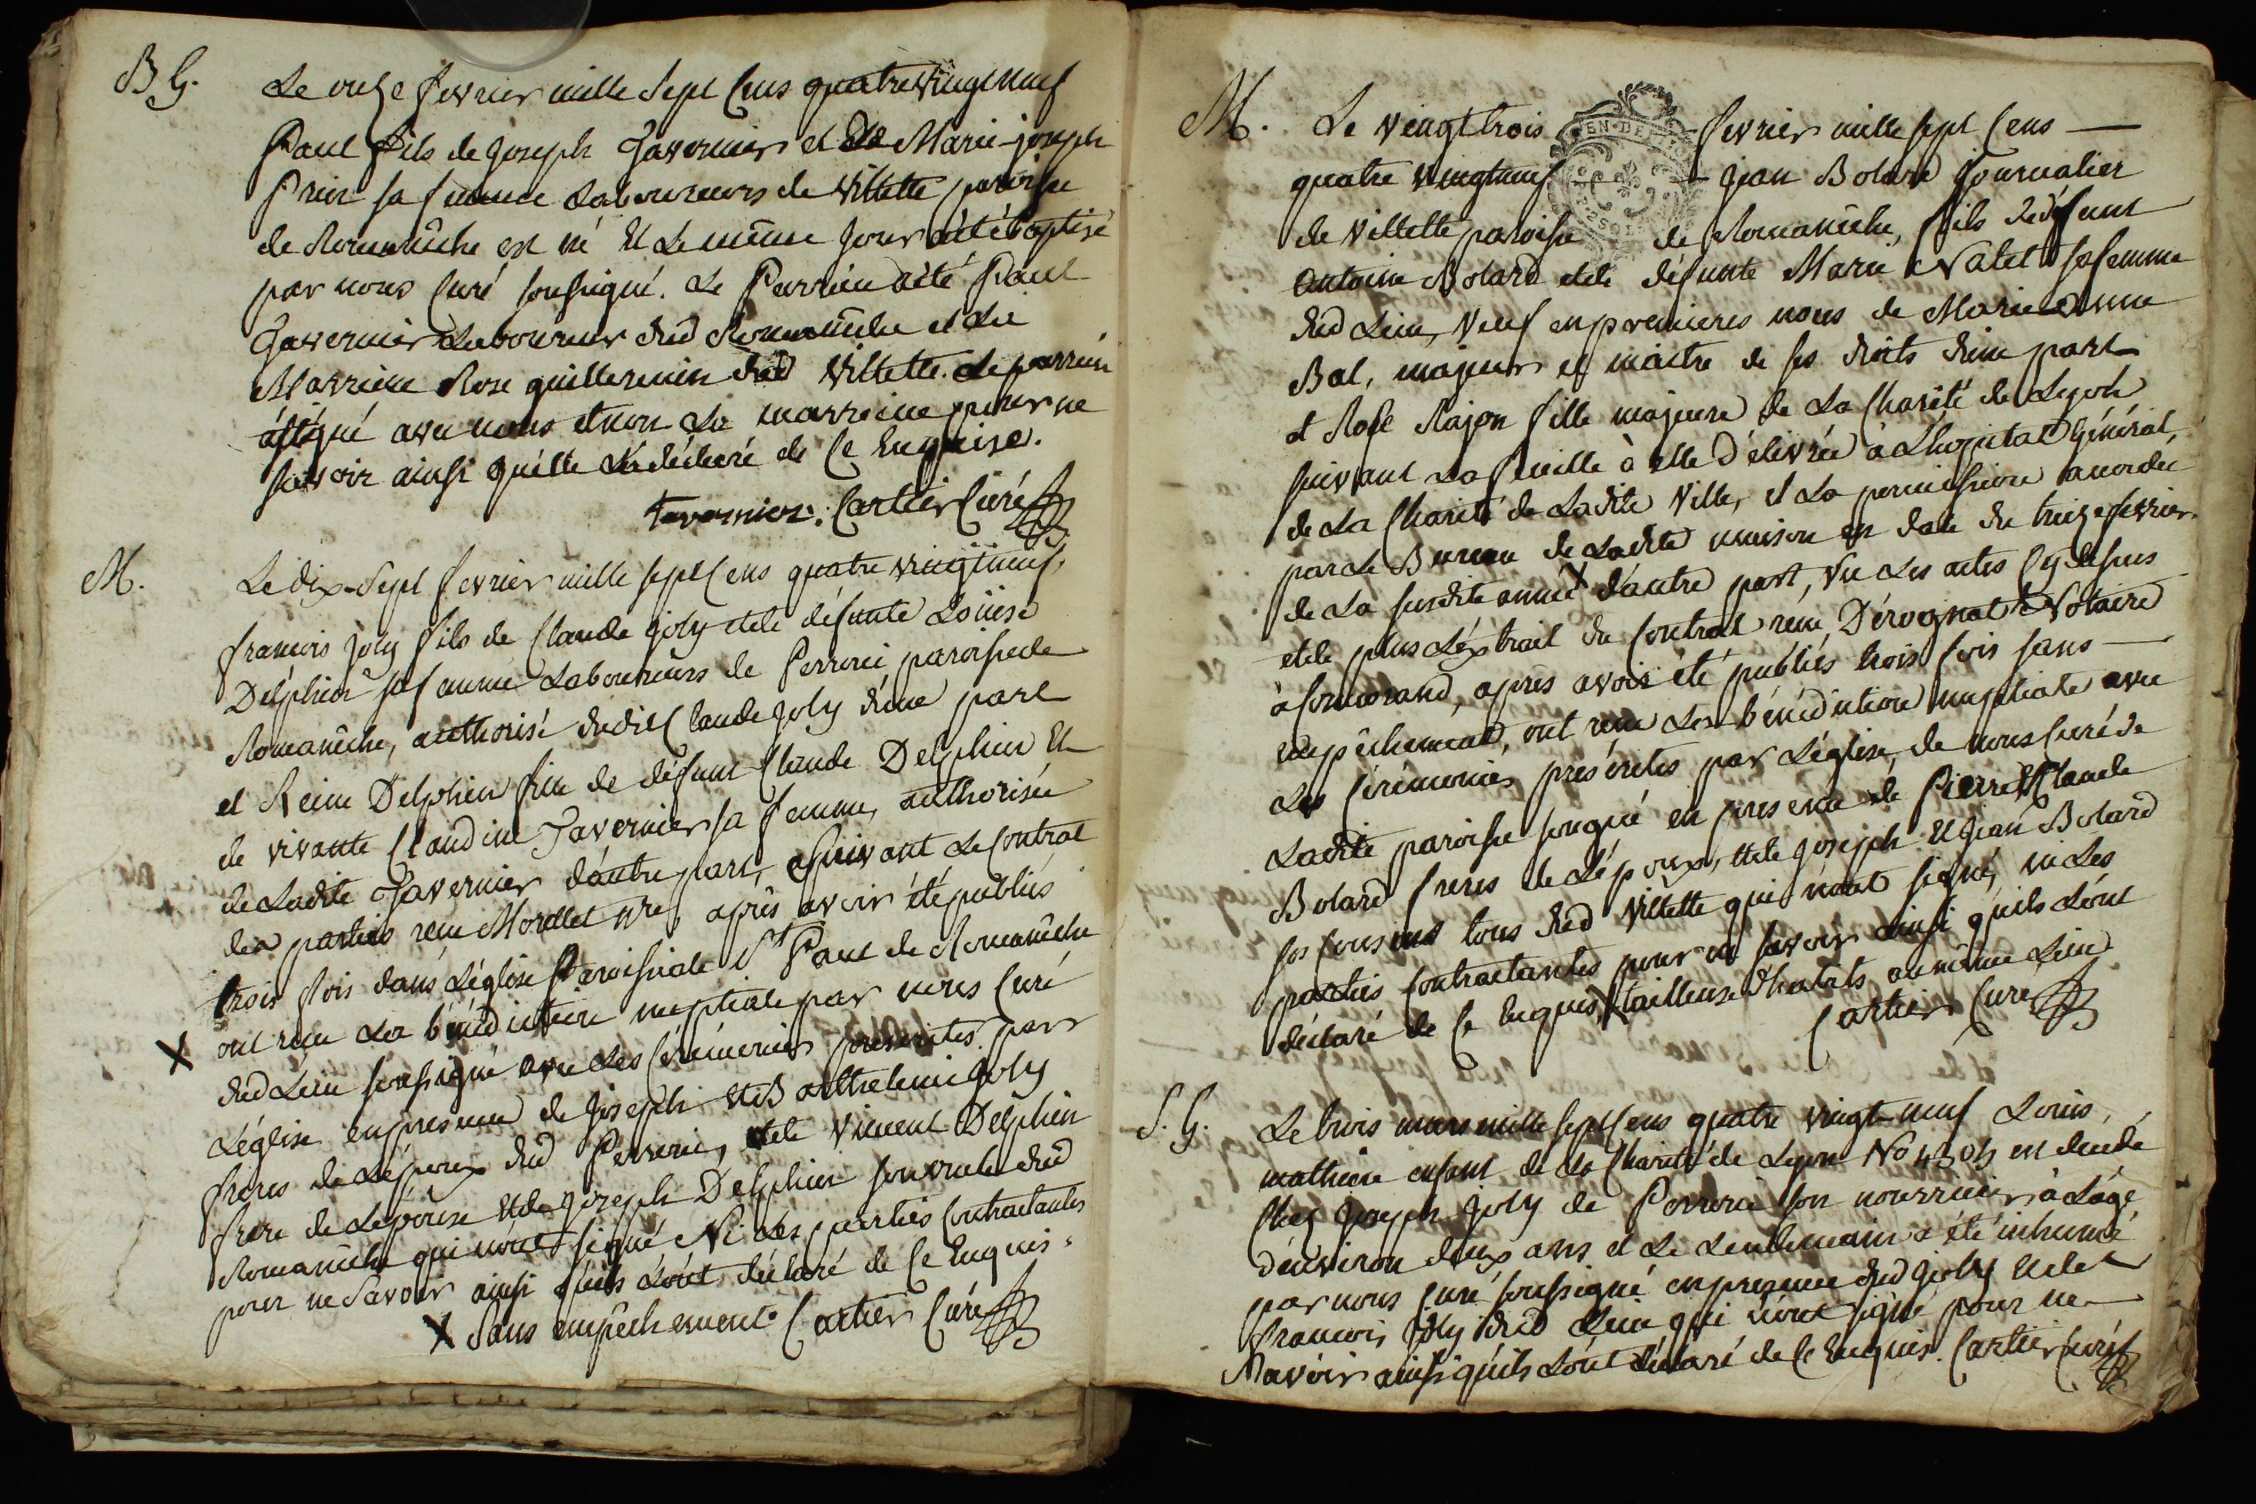 B G.
Le onze fevrier mille Sept Cens quatre vingt neuf
Paul fils de Joseph Tavernier et de Marie-joseph
Prier sa femme Laboureurs de Villette paroisse
de Romanêche est né Et Le même jour a été baptisé
par nous Curé soussigné. Le Parrein a été Paul
Tavernier Laboureur dud Romanêche et La
Marreine Rose guillermin dud Villette. Le parrein
a signé avec nous et non La marreine pour ne
savoir ainsi qu'elle L'a déclaré de Ce Enquise.
tavernier. Cartier Curé
M.
Le dix-Sept fevrier mille sept Cens quatre vingt neuf,
francois Joly fils de Claude Joly et de défunte Loüise
Delphin sa femme Laboureurs de Perroci paroisse de
Romanêche, authorisé dudit Claude Joly d'une part
et Reine Delphin fille de défunt Claude Delphin Et
de vivante Claudine Tavernier sa femme, authorisée
de Ladite Tavernier d'autre part, Suivant Le Contrat
des parties recu Morellet Nre, après avoir été publiés
trois fois dans L'église Paroissiale St Paul de Romanêche
X ont recu La bénédiction nuptiale par nous Curé
dud Lieu soussigné avec Les Cérémonies prescrites par
L'église en presence de Joseph et Barthelemi Joly
frères de L'époux dud Perroci, et de Vincent Delphin
frere de L'épouse et de Joseph Delphin son oncle dud
Romanêche qui n'ont signé Ni Les parties Contractantes
pour ne Savoir ainsi qu'ils L'ont déclaré de Ce Enquis.
X Sans empêchement. Cartier Curé
M.
Le vingt trois fevrier mille sept Cens
quatre vingt neuf Jean Bolard Journalier
de Villette paroisse de Romanêche, fils de défunt
Antoine Bolard et de défunte Marie Valet sa femme
dud Lieu, Veuf en premieres noces de Marie Anne
Bal, majeur et maitre de ses droits d'une part
et Rose Rajon fille majeure de La Charité de Lyon
suivant La feuille à elle délivrée à L'hopital Général,
de La Charité de Ladite Ville, et La permission accordée
par Le Bureau de Ladite maison en date du treize fevrier
de La susdite année X d'autre part, Vu Les actes Cy dessus
et de plus L'éxtrait du Contrat recu Dérognat Notaire
à Cormorand, après avoir été publiés trois fois sans
empêchement, ont recu La bénédiction nuptiale avec
Les Cérémonies prescrites par L'église, de nous Curé de
Ladite paroisse soussigné en presence de Pierre Et Claude
Bolard freres de L'époux, et de Joseph Et Jean Bolard
ses Cousins tous dud Villette qui n'ont signé, ni Les
parties Contractantes pour ne savoir ainsi qu'ils L'ont
déclaré de Ce Enquis X tailleuse d'habits au même Lieu
Cartier Curé
S. G.
Le trois mars mille sept Cens quatre vingt neuf Louis
mathieu enfant de La Charité de Lyon No 4304 est décédé
Chez Joseph Joly de Perroci son nourricier à L'age
d'environ deux ans et Le Lendemain a été inhumé
par nous Curé soussigné en presence dud Joly et de
francois Joly dud Lieu qui n'ont signé pour ne
Savoir ainsi qu'ils L'ont déclaré de Ce Enquis. Cartier Curé